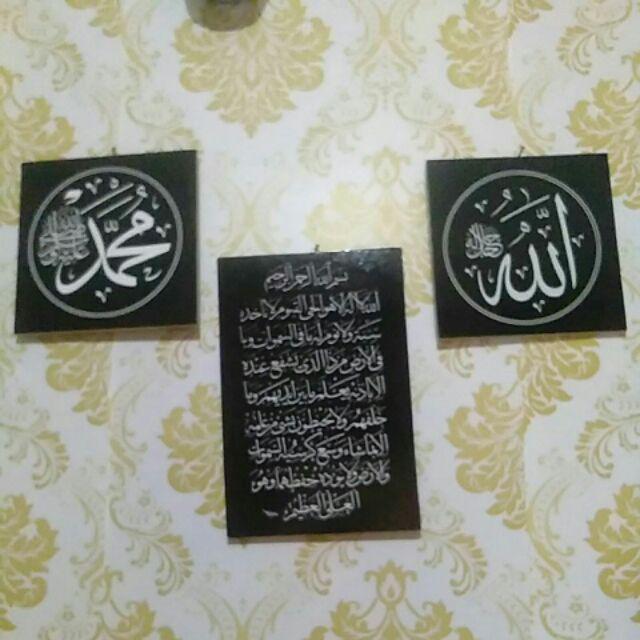 الله
جل جلاله
محمد
بسم الله الرحمن الرحيم
الله لا إله إلا هو الحي القيوم لا تأخذه
سنة ولا نوم له ما في السموات وما
في الأرض من ذا الذي يشفع عنده
إلا بإذنه يعلم ما بين أيديهم وما
خلفهم ولا يحيطون بشيء من علمه
إلا بما شاء وسع كرسيه السموات
والأرض ولا يؤده حفظهما وهو
العلي العظيم